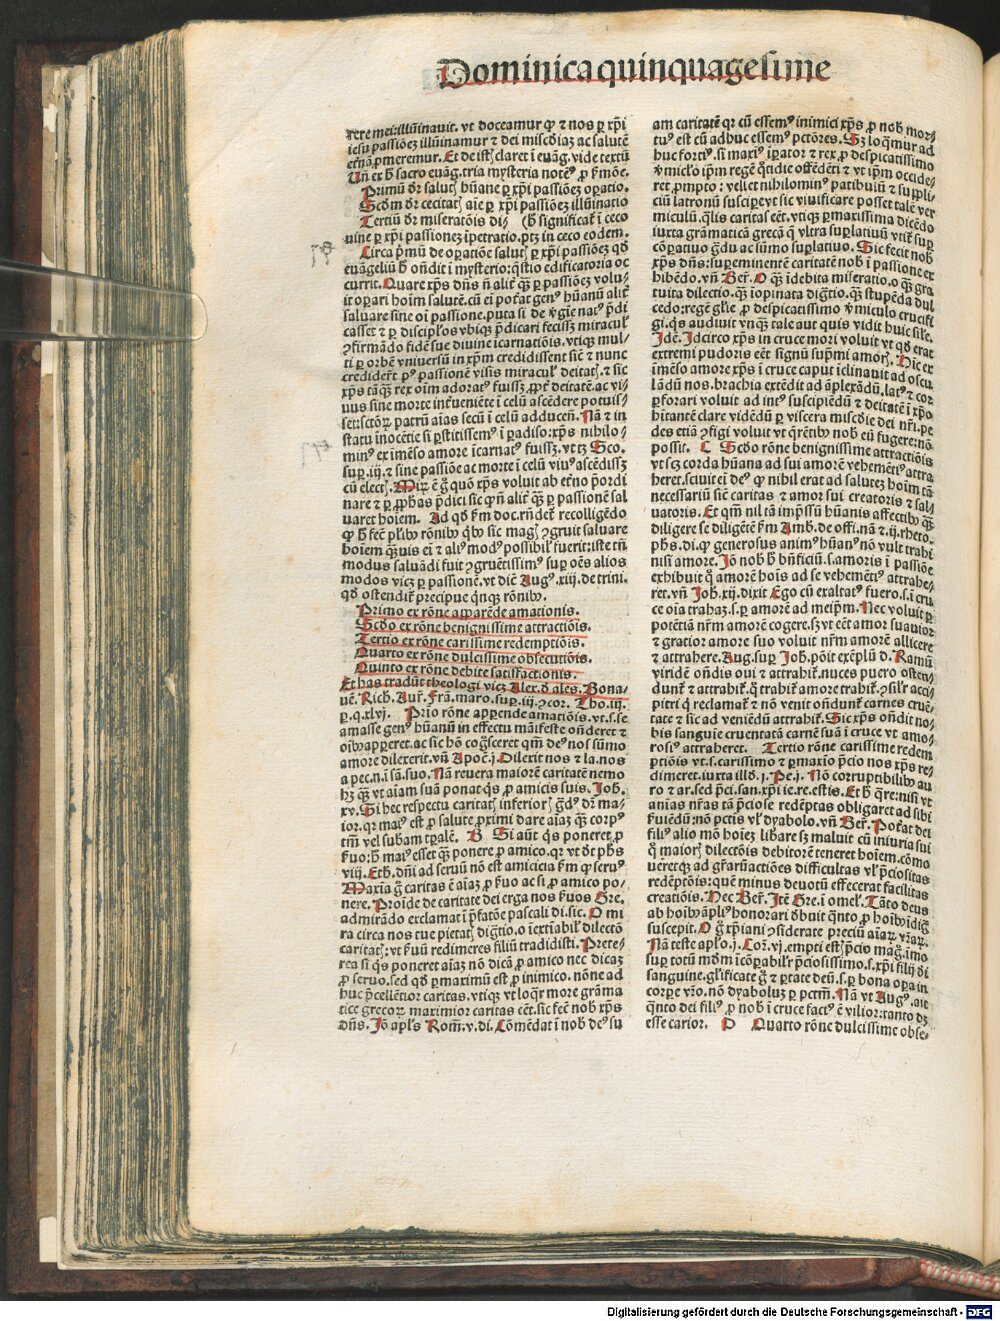 Dominica quinquagesime
rere mei:illũinauit. vt doceamur ꝙ ⁊ nos ꝑ xp̃i
iesu passiõeȝ illũinamur ⁊ dei misc̃diaȝ ac salutẽ
Et de ist claret ĩ euãg. vide textũ
Uñ ex h̃ sacro euãg. tria mysteria
Primũ d̃r salut hũane ꝑ xp̃i passiõeȝ oꝑatio.
Sc̃dm d̃r cecitat aĩe ꝑ xp̃i passiõeȝ illũinatio
Tertiũ d̃r miseratõis di
uine ꝑ xp̃i passioneȝ ĩpetratio. ptȝ in ceco eodem.
Circa p̃mũ de oꝑatiõe salut ꝑ xp̃i passiõeȝ qd̃
euãgeliũ h̃ oñdit ĩ mysterio: q̃stio edificatoria oc
currit. Quare xp̃s dñs ñ alit̃ qȝ̃ ꝑ passioneȝ volu
it oꝑari hoĩm salutẽ. cũ ei po̾at gen⁹ hũanũ alit̃
saluare sine oĩ passione. puta si de v̾gĩe nat⁹ p̃di
casset ⁊ ꝑ discipl̾os vbiqȝ p̃dicari fecissȝ miracul
ↄfirmãdo fidẽ sue diuine ĩcarnatiõis. vtiqȝ mul
ti ꝑ orbẽ vniuersũ in xp̃m credidissent siẽ ⁊ nunc
credidert p⁹ passionẽ visis miracul deitat. ⁊ sic
xp̃s tãqȝ rex oĩm adorat⁹ fuissȝ. ꝓpt̃ deitatẽ. ac vi
uus sine morte int̃ueniẽte ĩ celũ ascẽdere potuis
set: sctõꝝ patrũ aĩas secũ ĩ celũ adduceñ. Nã ⁊ in
statu inocẽtie si ꝑstitissem⁹ ĩ ꝑadiso: xp̃s nihilo
min⁹ ex ĩmẽso amore ĩcarnat⁹ fuissȝ. vt tȝ Sco.
suꝑ. iij. ⁊ sine passiõe ac morte ĩ celũ viu⁹ ascẽdissȝ
cũ elect. Miꝝ ẽ g̃ quõ xp̃s voluit ab et̾no p̾ordi
nare ⁊ ꝑ ꝓphas p̃dici sic ꝙ ñ alit̃ qȝ̃ ꝑ passionẽ sal
uaret hoĩem. Ad qd̃ ẜm doc. rñdet̃ recolligẽdo
modus saluãdi fuit ↄgruẽtissim⁹ suꝑ oẽs alios
modos vicȝ ꝑ passionẽ. vt diẽ Aug⁹. xiij. de trini.
qd̃ ostendit̃ precipue qnqȝ rõnibꝫ.
Primo ex rõne apparẽde amationis.
Sc̃do ex rõne benignissime attractiõis.
Tertio ex rõne carissime redemptiõis.
Quarto ex rõne dulcissime obsecutiõis.
Quinto ex rõne debite satisfactionis.
Et has tradũt theologi vicȝ Alex. d̾ ales. Bona
uẽ. Rich. Aur̃. Frã. maro. suꝑ. iij. ⁊ cor. Tho. iij.
p. q. xlvj. Prĩo rõne appende amatiõis. vt. s. se
amasse gen⁹ hũanũ in effectu mãifeste oñderet ⁊
oĩbꝫ appeeret. ac sic hõ cog̾sceret qm̃ de⁹ nos sũmo
amore dilexerit. vñ Apoc̃. j. Dilexit nos ⁊ la. nos
a pec. n. ĩ sã. suo. Nã reuera maiorẽ caritatẽ nemo
hȝ qȝ̃ vt aĩam suã ponat q̃s ꝓ amicis suis. Joh.
xv. Si hec respectu caritat inferior
ior. qr̃ mai⁹ est ꝓ salute ꝓximi dare aĩaȝ qȝ̃ corp⁹
tm̃ vel subam tꝑalẽ. B Si aũt q̃s poneret ꝓ
ẜuo: h̃ mai⁹ esset qȝ̃ ponere ꝓ amico. qr̃ vt d̾t ph̃s
viij. Eth. dñi ad seruũ nõ est amicicia ẜm ꝙ seru⁹
Maxĩa g̃ caritas ẽ aĩaȝ ꝓ ẜuo ac si ꝓ amico po
nere. Proĩde de caritate dei erga nos ẜuos Gre.
admirãdo exclamat ĩ p̃fatõe pascali di. sic. O mi
ra circa nos tue pietat dig̃tio. o ĩextĩabil̾ dilectõ
caritat: vt ẜuũ redimeres filiũ tradidisti. Prete
rea si q̃s poneret aĩaȝ nõ dicã ꝓ amico nec dicaȝ
ꝓ seruo. sed qd̃ ꝑmaximũ est ꝓ inimico. nõne ad
huc p̃cellẽtior caritas. vtiqȝ vt loqr̃ more grãma
tice grecoꝝ maximior caritas eẽt. sic fec̃ nob xp̃s
dñs. Jõ apl̾s Rom̃. v. di. Cõmẽdat ĩ nob de⁹ su
am caritatẽ qr̃ cũ essem⁹ inimici xp̃s ꝓ nob mor
tu⁹ est cũ adhuc essem⁹ pctõres. Sȝ loq̃mur ad
huc forti⁹. si maxi⁹ ĩꝑator ⁊ rex ꝓ despicatissimo
v̾miclo ip̃m regẽ q̃tidie offẽdẽti ⁊ vt ip̃m occide
ret. ꝓmpto: vellet nihilomin⁹ patibuiũ ⁊ suppli
ciũ latronũ suscipe vt sic viuificare posset talẽ ver
miculũ. q̃lis caritas eẽt. vtiqȝ ꝑmaxima dicẽdo
iuxta grãmaticã grecã q̃ vltra suplatiuũ vtit̃ suꝑ
cõꝑatiuo q̃du ac sũmo suꝑlatiuo. Sic fecit nob
xp̃s dñs: suꝑeminentẽ caritatẽ nob ĩ passione ex
hibẽdo. vñ Ber̃. O qȝ̃ ĩdebita miseratio. o qȝ̃ gra
tuita dilectio. qȝ̃ ĩopinata dig̃tio. qȝ̃ stupẽda dul
cedo: regẽ gl̾ie ꝓ despicatissimo v̾miculo crucifi
gi. q̃s audiuit vnqȝ̃ tale aut quis vidit huic sil̾e.
Jdẽ. Jdcirco xp̃s in cruce mori voluit vt qd̃ erat
extremi pudoris eẽt signũ sup̃mi amor. Hic ex
ĩmẽso amore xp̃s ĩ cruce caput ĩclinauit ad oscu
lãdũ nos. brachia extẽdit ad ãplexãdũ. lat⁹ ⁊ cor
ꝑforari voluit ad int⁹ suscipiẽdũ ⁊ deitatẽ ĩ xp̃o
hĩtantẽ clare vidẽdũ ꝑ viscera misc̃die dei nr̃i. pe
des etiã ↄfigi voluit vt q̃rẽtibꝫ nob eũ fugere: nõ
possit. C Sc̃do rõne benignissime attractiõis
vt scȝ corda hũana ad sui amorẽ vehemẽti⁹ attra
heret. sciuit ei de⁹ ꝙ nihil erat ad saluteȝ hoĩm tã
necessariũ siẽ caritas ⁊ amor sui creatoris ⁊ sal
uatoris. Et qm̃ nil tã ĩmpssũ hũanis affectibꝫ qȝ̃
diligere se diligẽtẽ ẜm Amb. de offi. nã ⁊. ij. rheto.
ph̃s. di. ꝙ generosus anim⁹ hũan⁹ nõ vult trahi
nisi amore. Jõ nob h̃ bñficiũ. s. amoris ĩ passiõe
exhibuit q̃ amorẽ hoĩs ad se vehemẽti⁹ attrahe
ret. vñ Joh. xij. dixit Ego cũ exaltat⁹ fuero. s. ĩ cru
ce oĩa trahaȝ. s. ꝑ amorẽ ad meip̃m. Nec voluit ꝑ
potẽtiã nr̃m amorẽ cogere. sȝ vt eẽt amor suauior
⁊ gratior amore suo voluit nr̃m amorẽ allicere
⁊ attrahere. Aug. suꝑ Joh. põit exẽplũ d. Ramũ
viridẽ oñdis oui ⁊ attrahit̃. nuces puero osten
dunt̃ ⁊ attrahit̃. q̃ trahit̃ amore trahit̃. ⁊ sil̾r acci
pitri q̃ reclamat̃ ⁊ nõ venit oñdunt̃ carnes cruẽ
tate ⁊ sic ad veniẽdũ attrahit̃. Sic xp̃s oñdit no
bis sanguĩe cruentatã carnẽ suã ĩ cruce vt amo
rosi⁹ attraheret. Tertio rõne carissime redem
ptiõis vt. s. carissimo ⁊ ꝑmaxĩo p̃cio nos xp̃s re
dimeret. iuxta illd̃. j. Pe. j. Nõ corruptibilibꝫ au
ro ⁊ ar. sed p̃ci. san. xp̃i ie. re. estis. Et h̃ q̃re: nisi vt
anĩas nr̃as tã p̃ciose redẽptas obligaret ad sibi
ẜuiẽdũ: nõ pctis vl̾ dyabolo. vñ Ber̃. Po̾at dei
fili⁹ alio mõ hoĩeȝ libare sȝ maluit cũ iniuria sui
q̃ maiori dilectõis debitorẽ teneret hoĩem. cõmo
ueretqȝ ad gr̃aꝝactiões difficultas vl̾ p̃ciositas
redẽptõis: quẽ minus deuotũ effecerat facilitas
creatiõis. Hec Ber̃. Jtẽ Gre. ĩ omel̾. Tãto deus
ab hoĩbꝫ ãpli⁹ honorari d̾buit q̃nto ꝓ hoĩbꝫ ĩdig
suscepit. O g̃ xp̃iani ↄsiderate preciũ aĩaꝝ vr̃aꝝ.
Nã teste apl̾o. j. Cor̃. vj. empti estis p̃cio mag. ĩmo
suꝑ totũ mõm ĩcõꝑabil̾r p̃ciosissimo. s. xp̃i filij di
sanguine. gl̾ificate g̃ ⁊ ꝑtate deũ. s. ꝑ bona oꝑa in
corꝑe vr̃o. nõ dyaboluȝ ꝑ pctm̃. Nã vt Aug⁹. ait
q̃nto dei fili⁹ ꝓ nob ĩ cruce fact⁹ ẽ vilior: tanto dȝ
esse carior. D Quarto rõne dulcissime obse
Digitalisierung gefördert durch die Deutsche Forschungsgemeinschaft - DFG